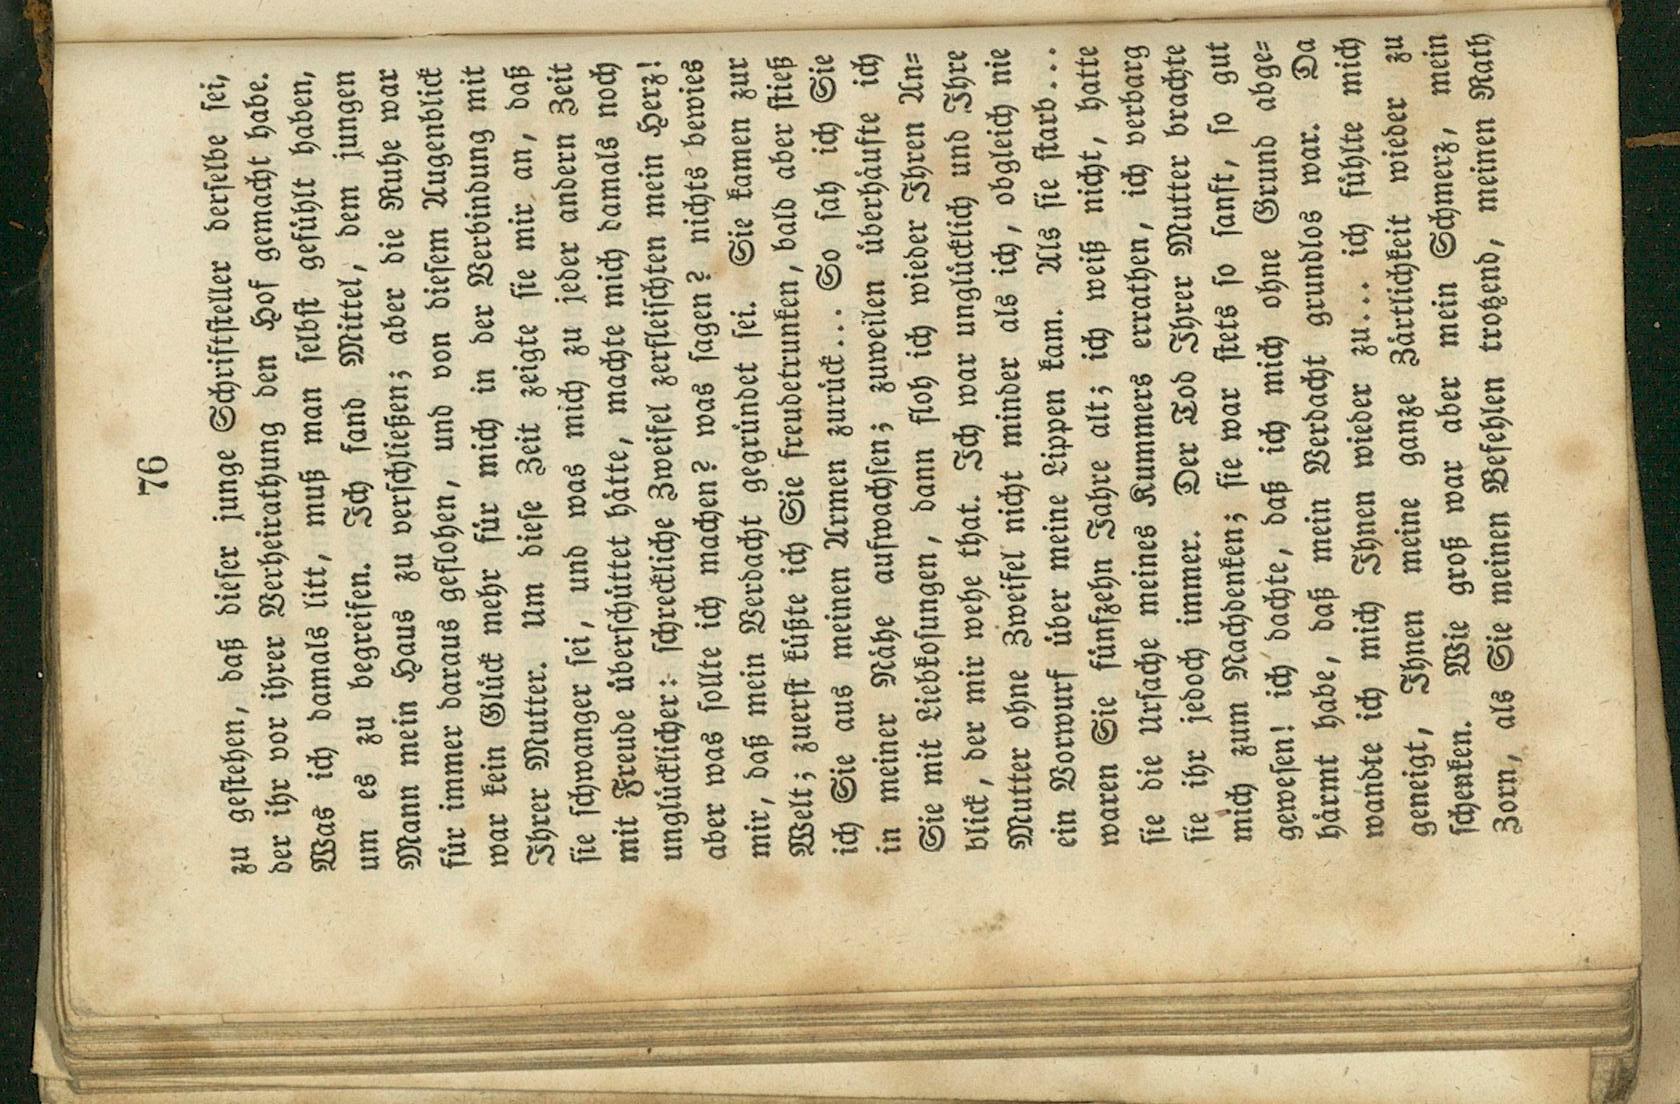 76
zu geſtehen, daß dieſer junge Schriftſteller derſelbe ſei,
der ihr vor ihrer Verheirathung den Hof gemacht habe.
Was ich damals litt, muß man ſelbſt gefühlt haben,
um es zu begreifen. Ich fand Mittel, dem jungen
Mann mein Haus zu verſchließen; aber die Ruhe war
für immer daraus geflohen, und von dieſem Augenblick
war kein Glück mehr für mich in der Verbindung mit
Ihrer Mutter. Um dieſe Zeit zeigte ſie mir an, daß
ſie ſchwanger ſei, und was mich zu jeder andern Zeit
mit Freude überſchüttet hätte, machte mich damals noch
unglücklicher: ſchreckliche Zweifel zerfleiſchten mein Herz!
aber was ſollte ich machen? was ſagen? nichts bewies
mir, daß mein Verdacht gegründet ſei. Sie kamen zur
Welt; zuerſt küßte ich Sie freudetrunken, bald aber ſtieß
ich Sie aus meinen Armen zurück... So ſah ich Sie
in meiner Nähe aufwachſen; zuweilen überhäufte ich
Sie mit Liebkoſungen, dann floh ich wieder Ihren An⸗
blick, der mir wehe that. Ich war unglücklich und Ihre
Mutter ohne Zweifel nicht minder als ich, obgleich nie
ein Vorwurf über meine Lippen kam. Als ſie ſtarb...
waren Sie fünfzehn Jahre alt; ich weiß nicht, hatte
ſie die Urſache meines Kummers errathen, ich verbarg
ſie ihr jedoch immer. Der Tod Ihrer Mutter brachte
mich zum Nachdenken; ſie war ſtets ſo ſanft, ſo gut
geweſen! ich dachte, daß ich mich ohne Grund abge⸗
härmt habe, daß mein Verdacht grundlos war. Da
wandte ich mich Ihnen wieder zu... ich fühlte mich
geneigt, Ihnen meine ganze Zärtlichkeit wieder zu
ſchenken. Wie groß war aber mein Schmerz, mein
Zorn, als Sie meinen Befehlen trotzend, meinen Rath